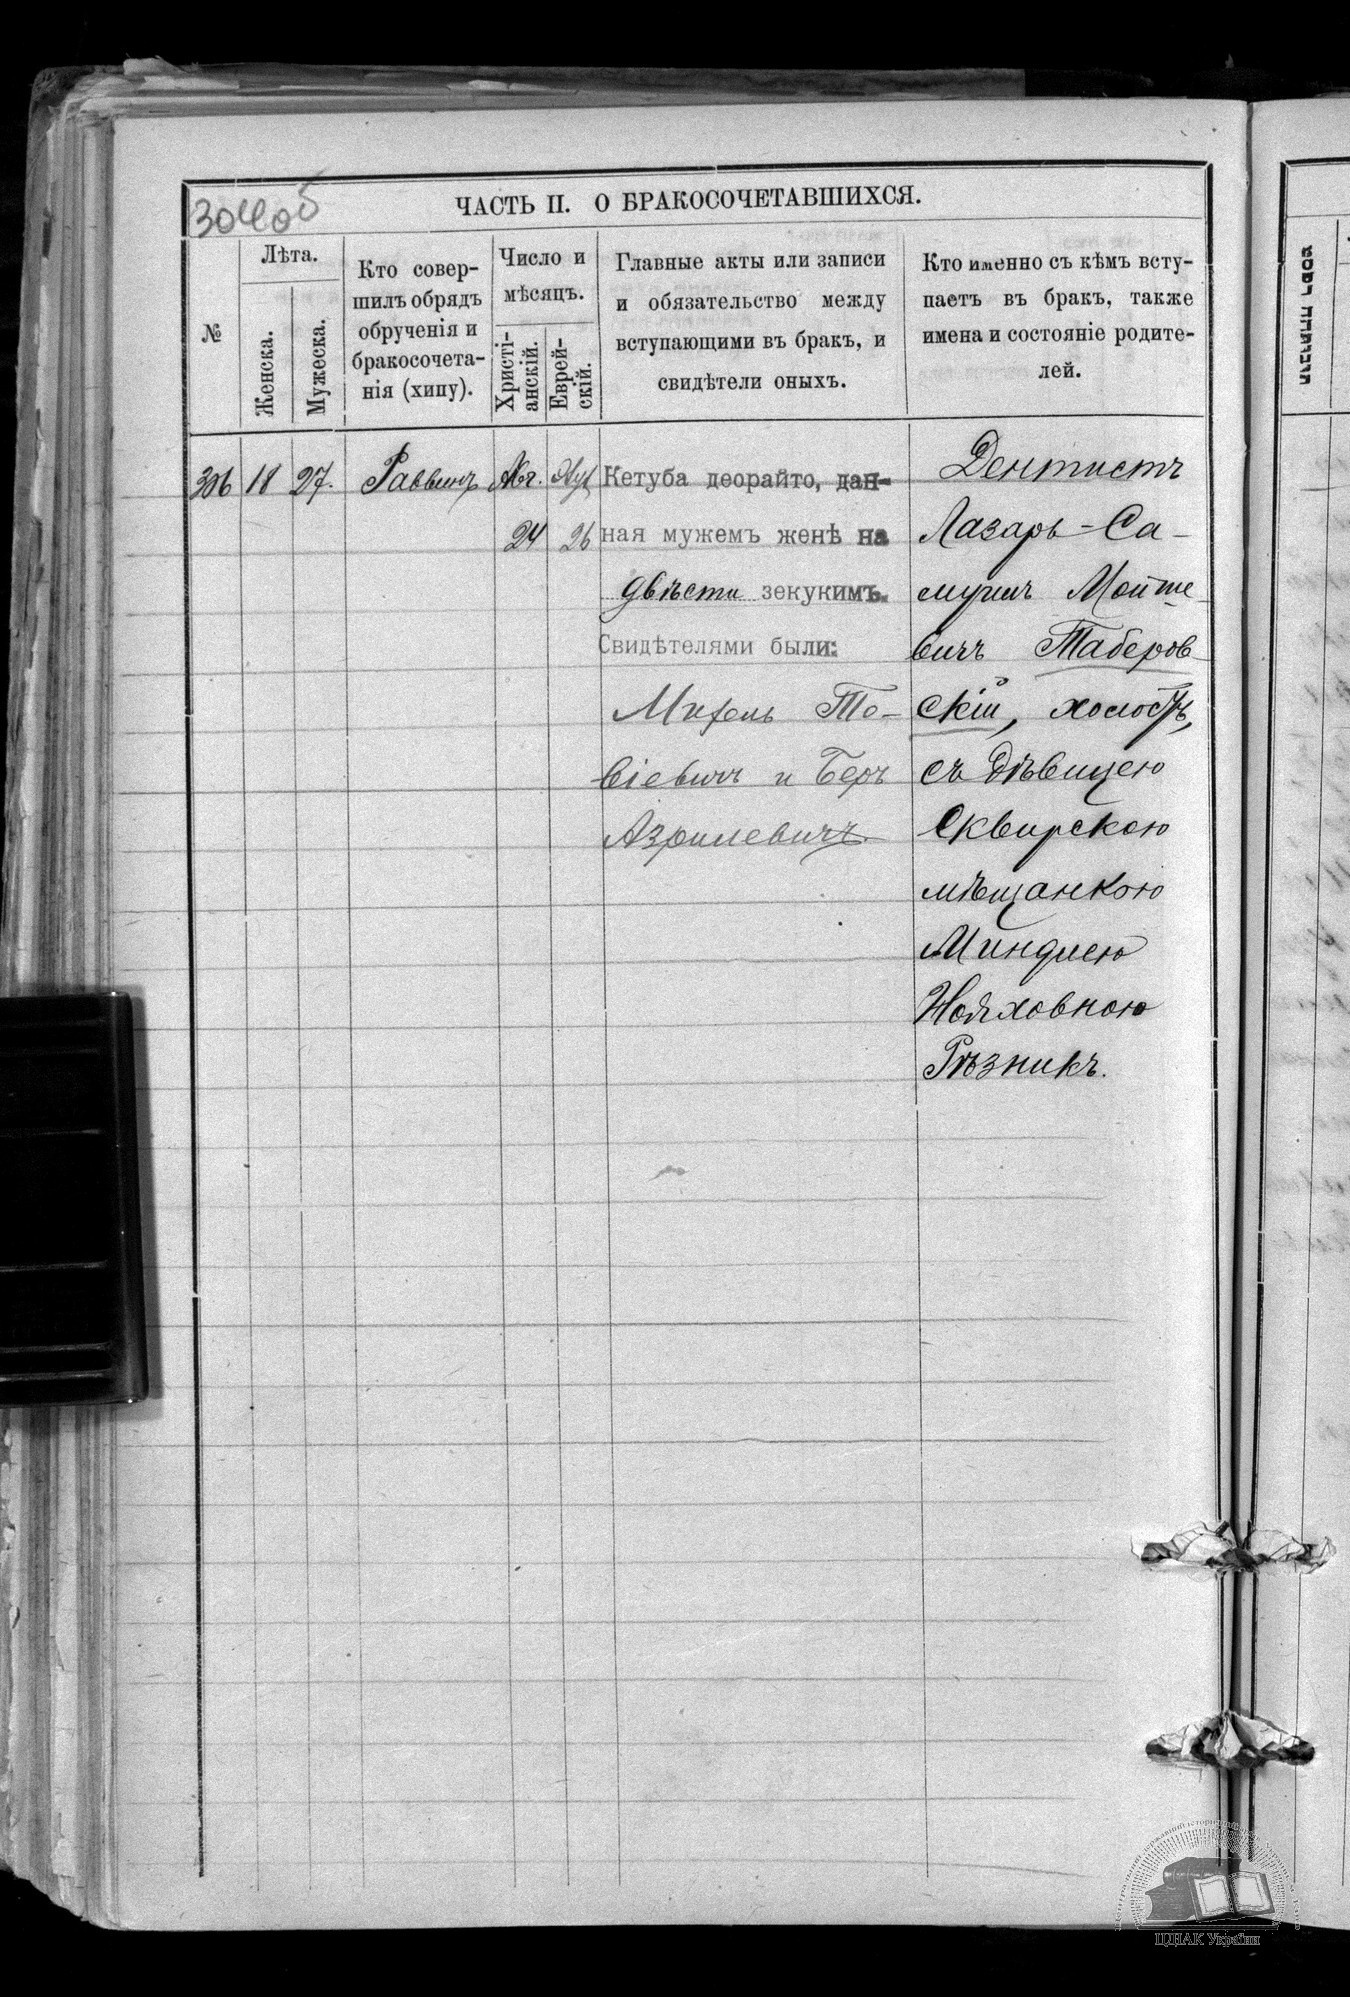 304 об
ЧАСТЬ II. О БРАКОСОЧЕТАВШИХСЯ.
№
Лѣта.
Женска.
Мужеска.
Кто совер-
шилъ обрядъ
обрученія и
бракосочета-
нія (хипу).
Число и
мѣсяцъ.
Христі-
анскій.
Еврей-
скій.
Главные акты или записи
и обязательство между
вступающими въ бракъ, и
свидѣтели оныхъ.
Кто именно съ кѣмъ всту-
паетъ въ бракъ, также
имена и состояніе родите-
лей.
306 18 27. Раввинъ Авг.
24 26
Кетуба деорайто, дан-
ная мужемъ женѣ на
двѣсти зекукимъ.
Свидѣтелями были:
То-
віевичъ и Беръ
Азрилевичъ.
Дентистъ
Лазарь-Са-
муилъ Мойше-
вичъ Таберов-
скій, холостъ,
съ дѣвицею
Сквирскою
мѣщанкою
Миндлею
Нойховною
Рѣзникъ.
ЦДІАК України